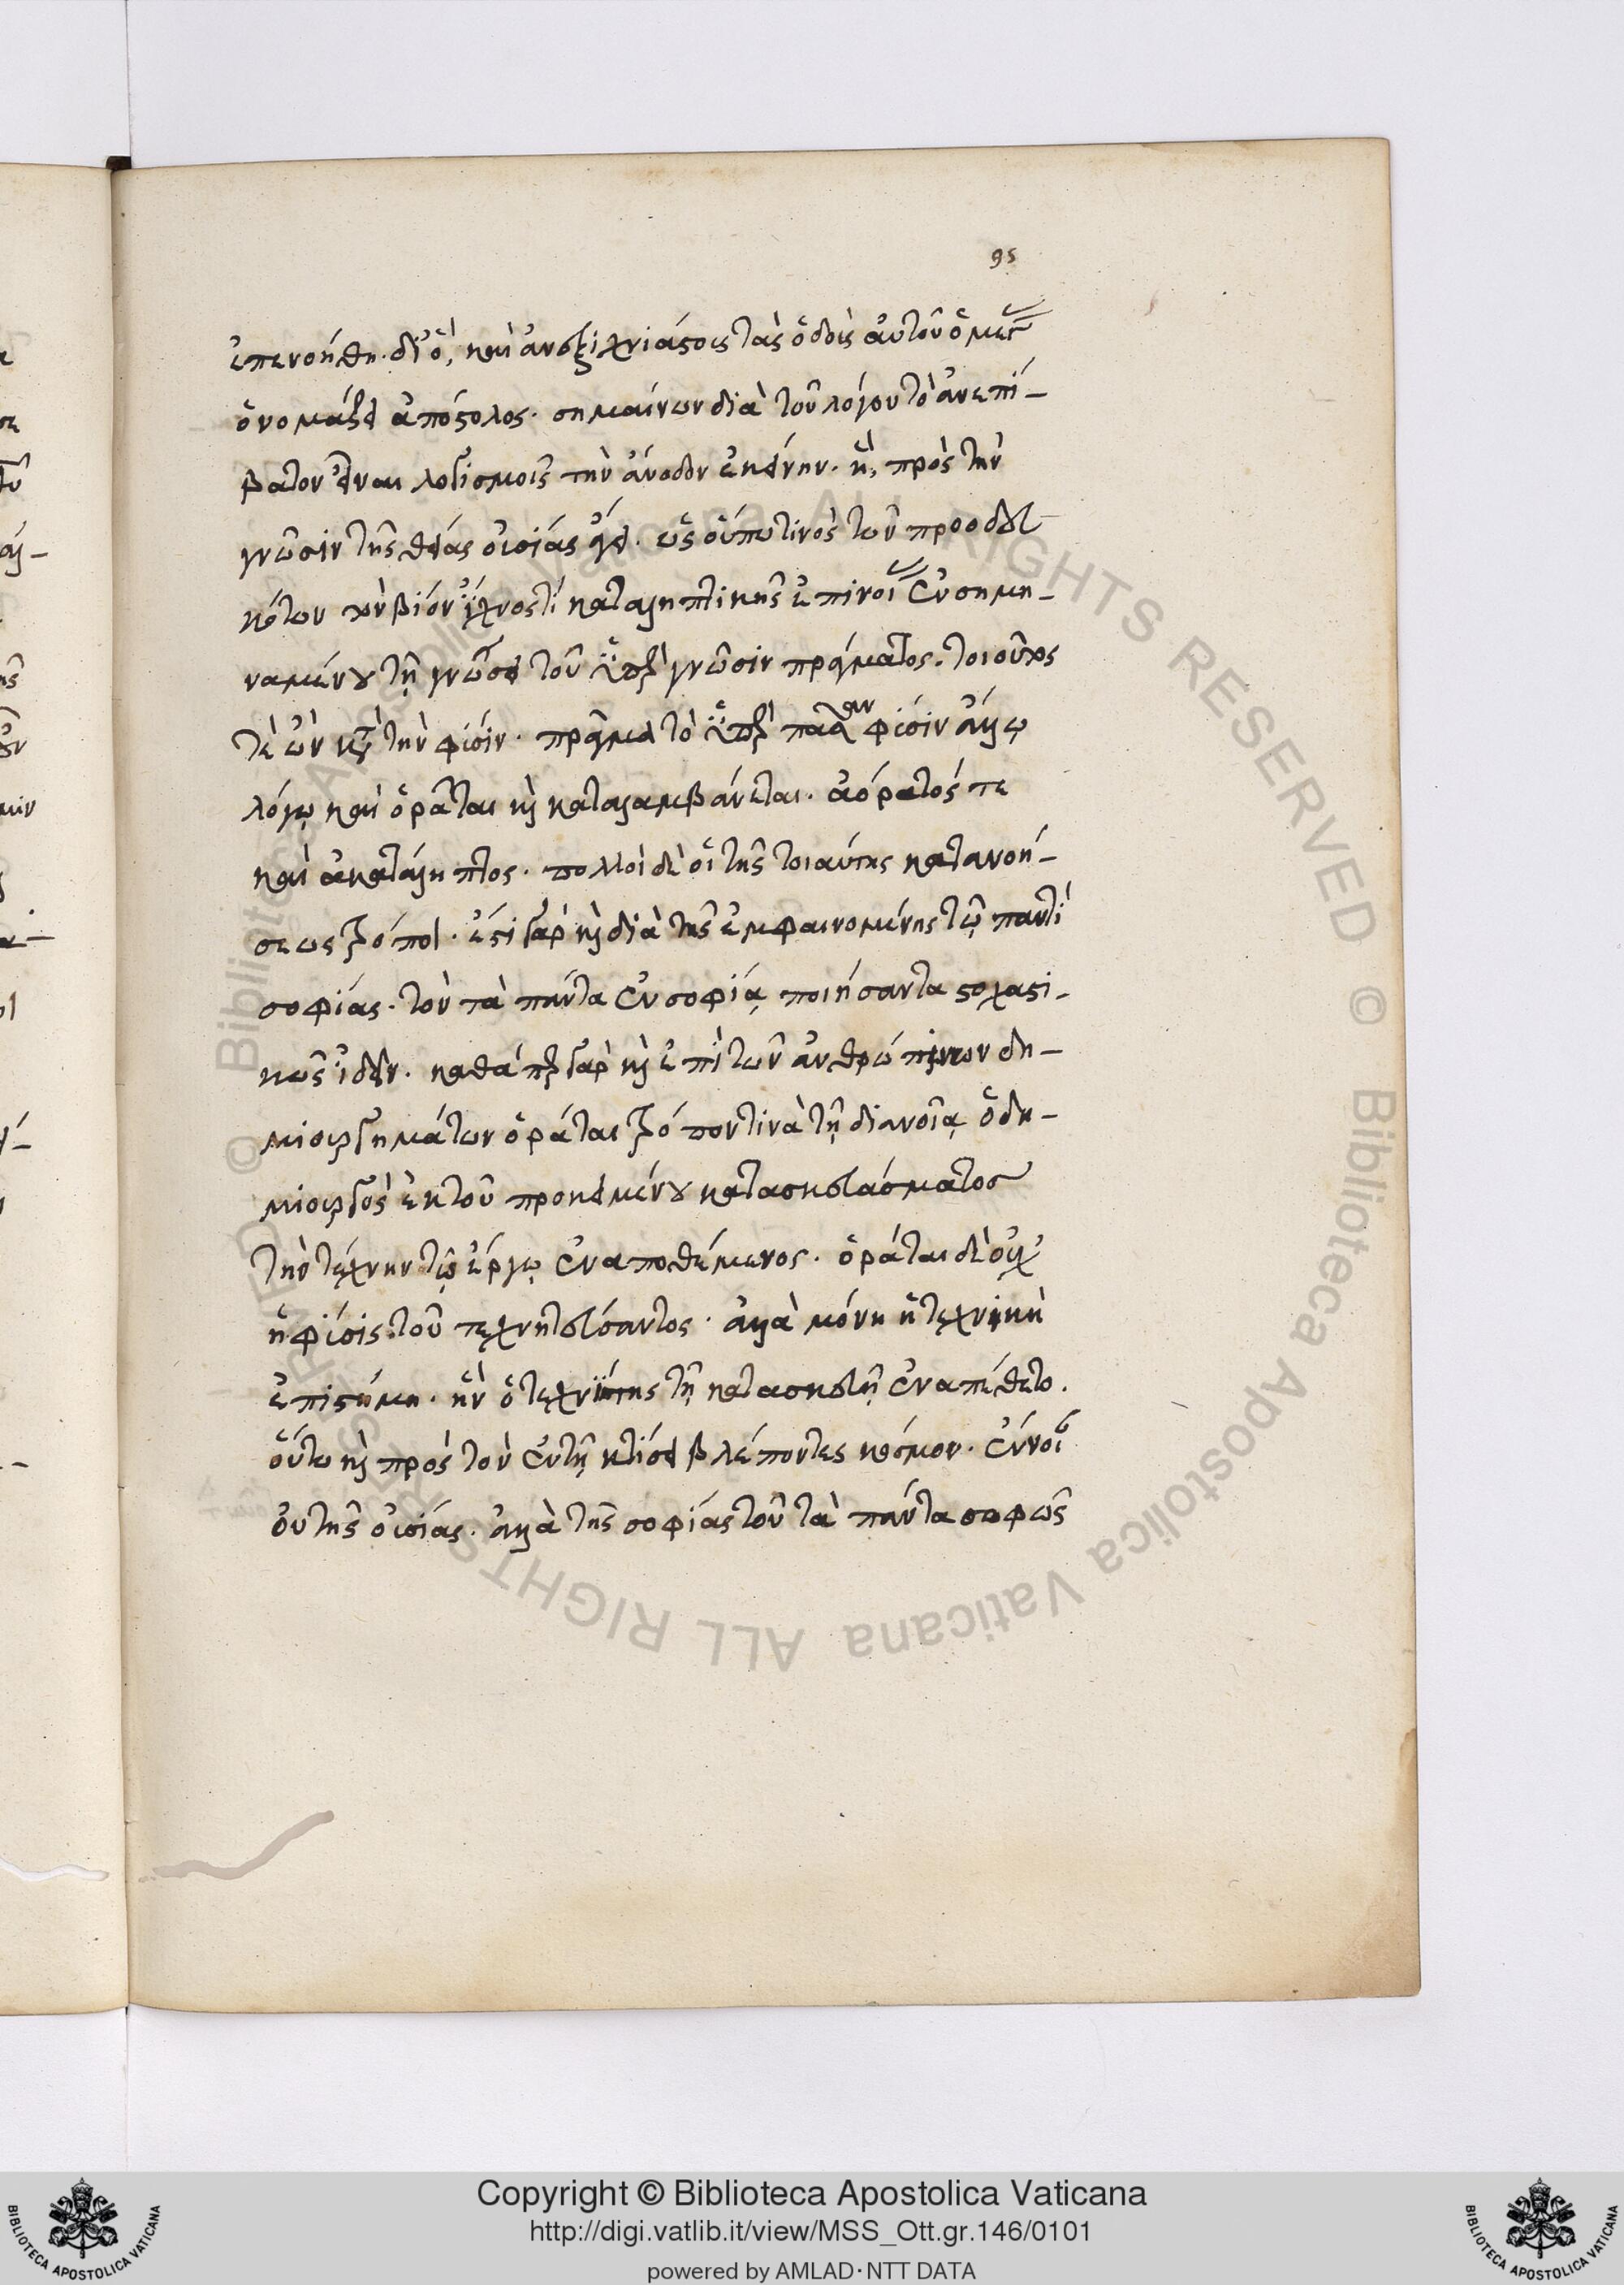 95
ἐπενοήθη. διὸ, καὶ ἀνεξιχνιάστους τὰς ὁδοὺς αὐτοῦ ὁ μέγας
ὀνομάζει ἀπόστολος. σημαίνων διὰ τοῦ λόγου τὸ ἀνεπί-
βατον εἶναι λογισμοῖς τὴν ἄνοδον ἐκείνην. ἣ, πρὸς τὴν
γνῶσιν τῆς θείας οὐσίας ἄγει. ὡς οὔπω τινὸς τῶν προοδευ-
κότων τὸν βίον ἴχνος τί καταληπτικῆς ἐπινοίας ἐνσημη-
ναμένου τῇ γνώσει τοῦ ὑπὲρ γνῶσιν πράγματος. τοιοῦτος
τὲ ὢν κατὰ τὴν φύσιν. πράγμα τὸ ὑπὲρ πᾶσαν φύσιν ἄλλῳ
λόγῳ καὶ ὁρᾶται καὶ καταλαμβάνεται. ἀόρατός τε
καὶ ἀκατάληπτος. πολλοὶ δὲ οἱ τῆς τοιαύτης κατανοή-
σεως τρόποι. ἔστι γὰρ καὶ διὰ τῆς ἐμφαινομένης τῷ παντὶ
σοφίας. τὸν τὰ πάντα ἐν σοφίᾳ ποιήσαντα στοχαστι-
κῶς ἰδεῖν. καθάπερ γὰρ καὶ ἐπὶ τῶν ἀνθρώπίνων δη-
μιουργημάτων ὁράται τρόπον τινὰ τῇ διανοίᾳ ὁ δη-
μιουργὸς ἐκ τοῦ προκειμένου κατασκευάσματος
τὴν τέχνην τῷ ἔργῳ ἐναποθέμενος. ὁράται δὲ οὐχ
ἡ φύσις τοῦ τεχνητεύσαντος. ἀλλὰ μόνη ἡ τεχνικὴ
ἐπιστήμη. ἣν ὁ τεχνίτης τῇ κατασκευῇ ἐναπέθετο.
οὕτω καὶ πρὸς τὸν ἐν τῇ κτίσει βλέποντες κόσμον. ἔννοιαν
οὐ τῆς οὐσίας. ἀλλὰ τῆς σοφίας τοῦ τὰ πάντα σοφῶς
Copyright © Biblioteca Apostolica Vaticana
http://digi.vatlib.it/view/MSS_Ott.gr.146/0101
powered by AMLAD·NTT DATA